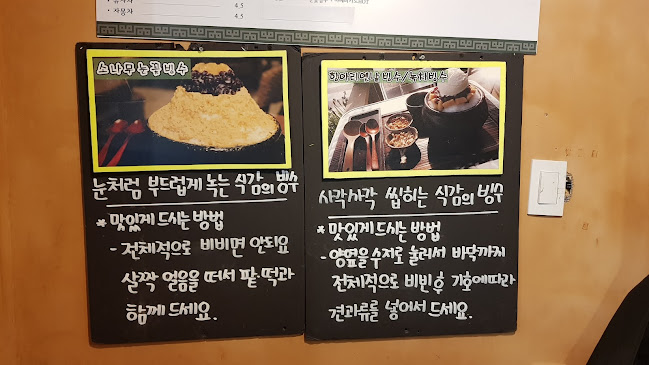 자몽차 4.5
4.5
스나무눈꽃빙수
눈처럼 부드럽게 녹는 식감의 빙수
* 맛있게 드시는 방법
- 전체적으로 비비면 안되요
살짝 얼음을 떠서 팥·떡과
함께 드세요.
항아리옛날빙수/녹차빙수
사각사각 씹히는 식감의 빙수
* 맛있게 드시는 방법
- 양옆을 수저로 눌러서 바닥까지
전체적으로 비빈 후 기호에 따라
견과류를 넣어서 드세요.